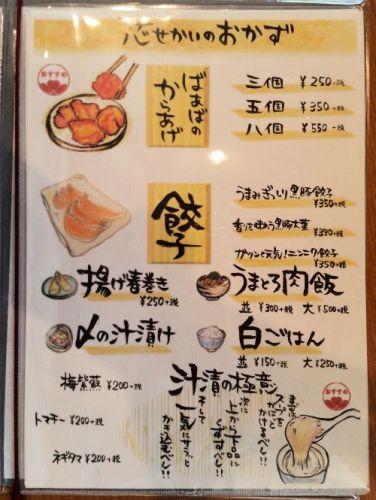 恋せかいのおかず
おすすめ
ばぁばの
からあげ
三個 ¥250+税
五個 ¥350+税
八個 ¥550+税
餃子
うまみぎっしり黒豚餃子
¥350+税
¥390+税
ガツンと元気!ニンニク餃子
¥350+税
揚げ春巻き
¥250+税
うまとろ肉飯
並 ¥300+税 大 ¥500+税
〆の汁漬け
白ごはん
並 ¥150+税 大 ¥250+税
梅紫蘇 ¥200+税
トマチー ¥200+税
ネギタマ ¥200+税
汁漬の極意
おすすめ
まずは
スープを
がばっと
かけるべし!!
次に
上から十品に
すするべし!!
そして
一気にサラッと
かき込むべし!!